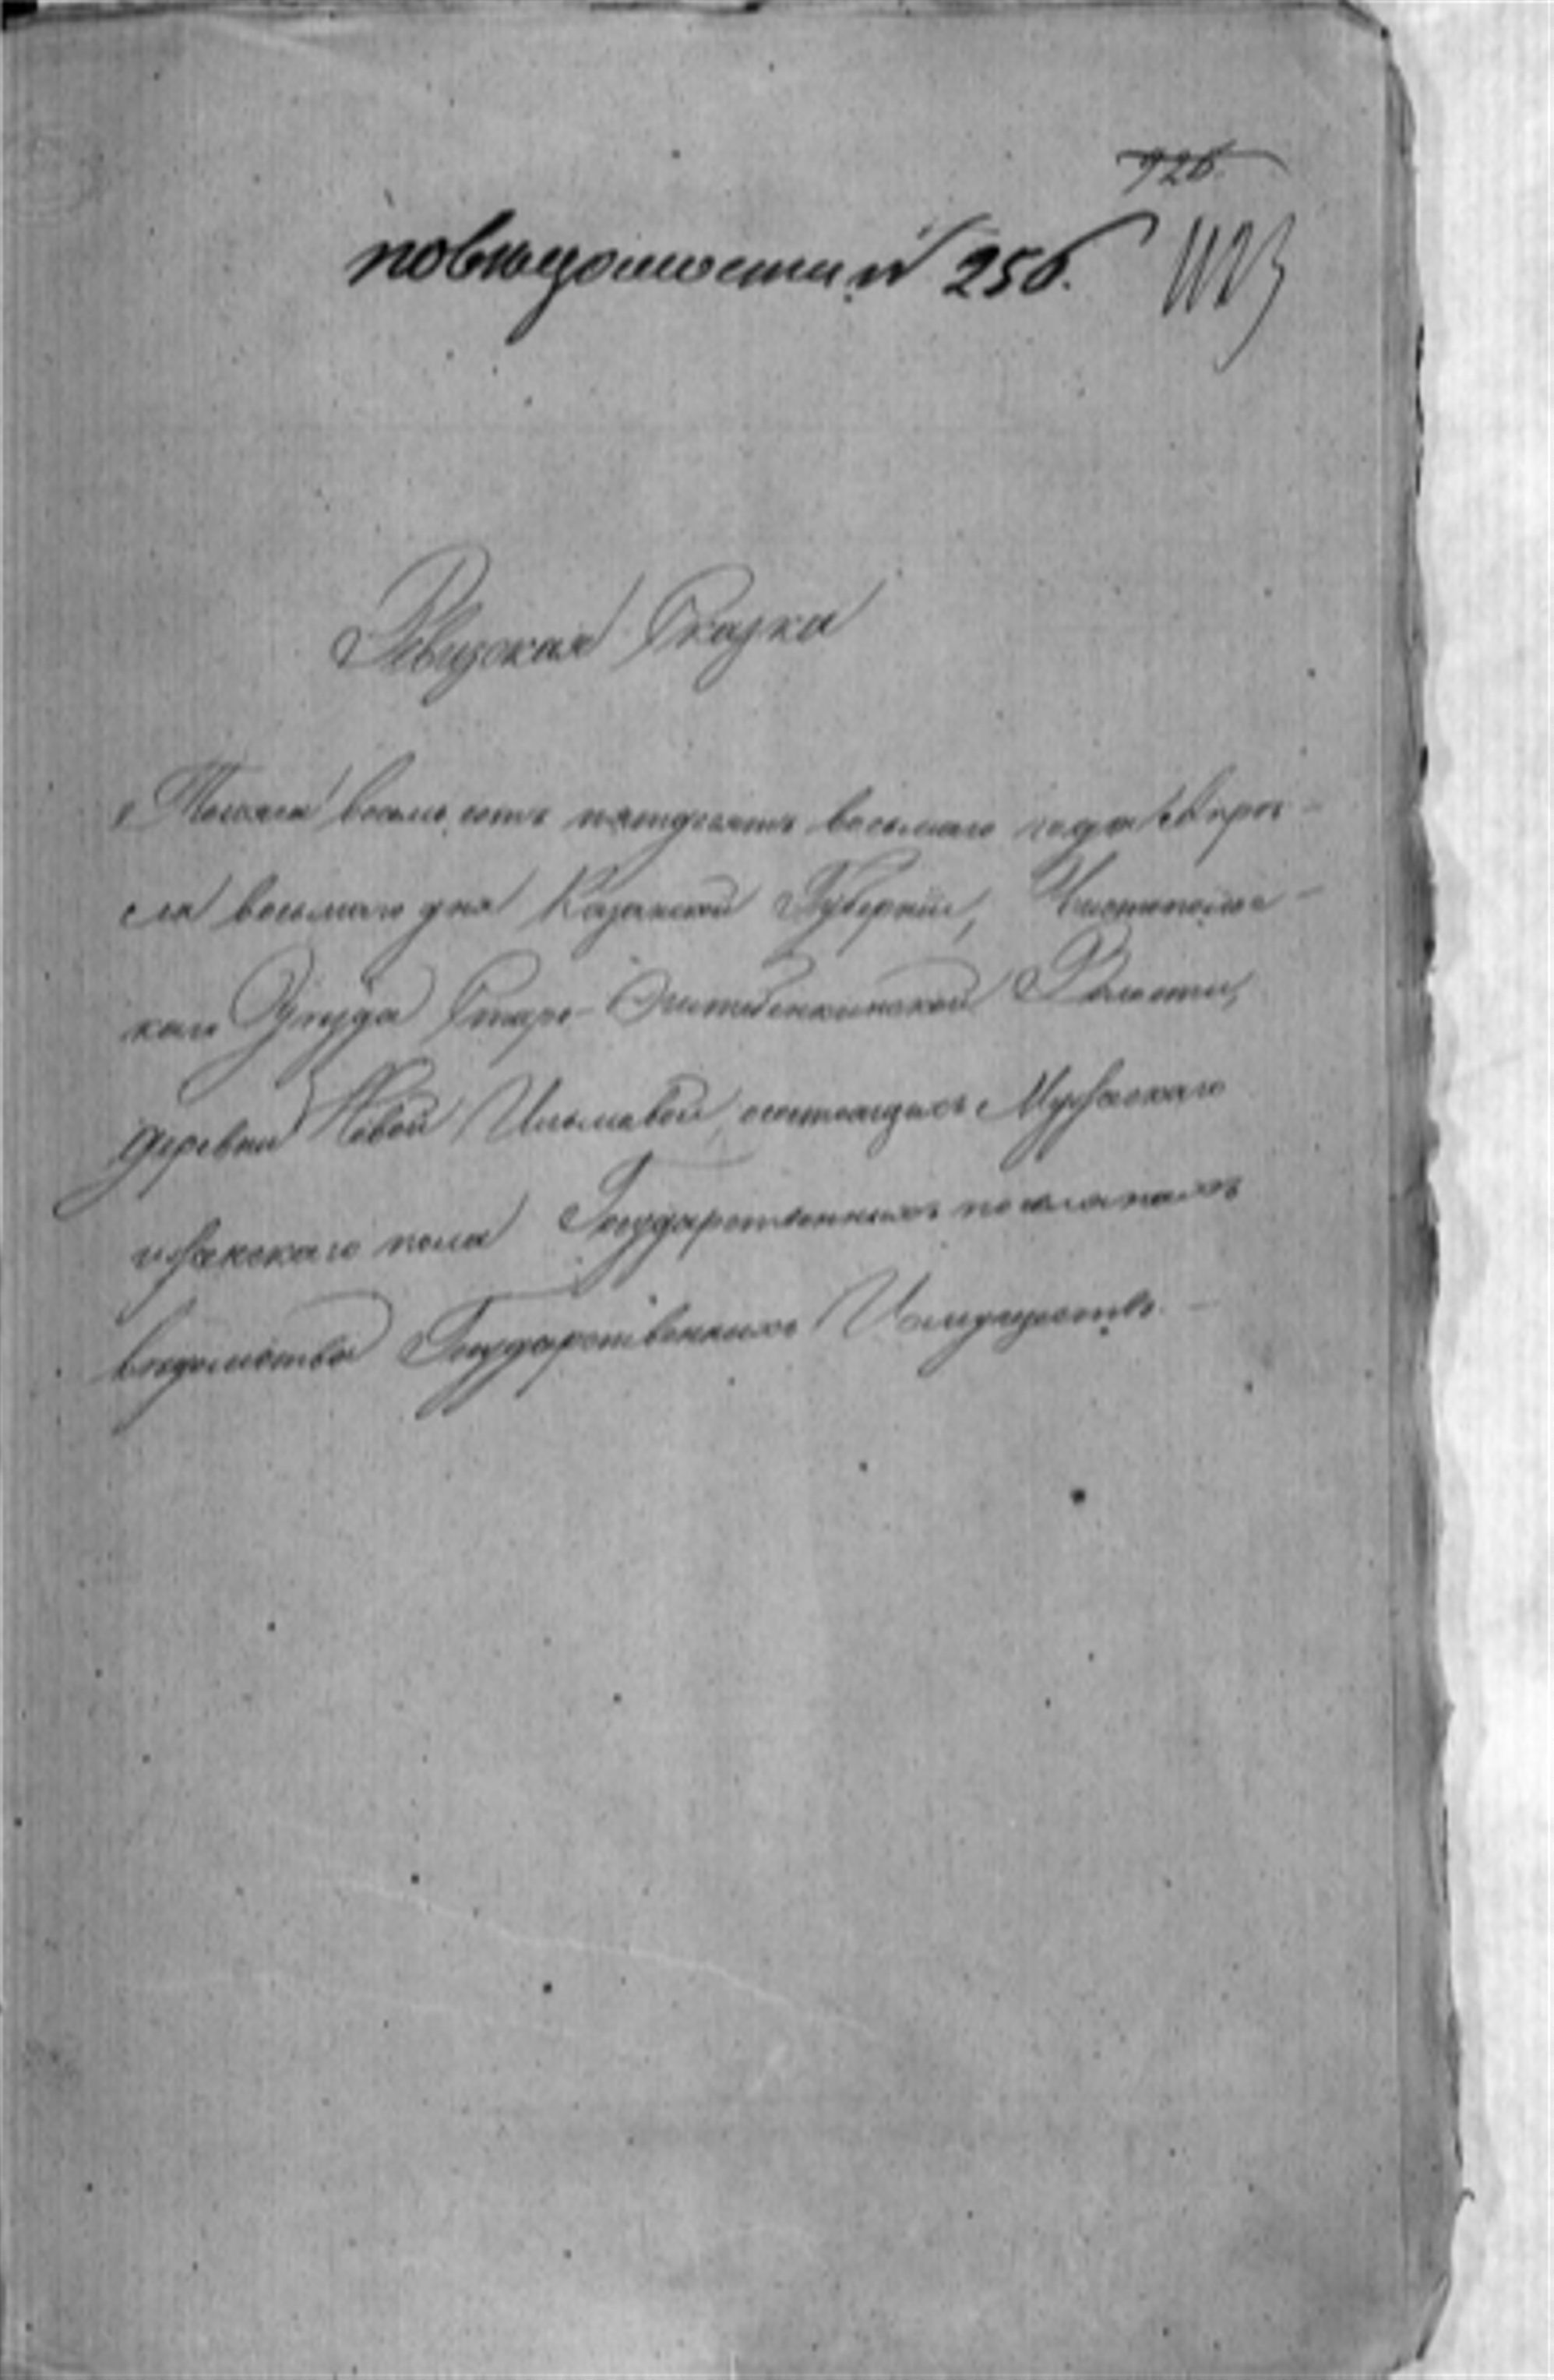 926
по вѣдомости № 256.
1123
Ревизская Сказка
Тысяча восемь сотъ пятьдесятъ восьмаго года Апрѣ-
ля восьмаго дня Казанской Губерніи, Чистопольс-
каго Уѣзда Старо- Волости,
деревни Новой Ильмовой, состоящихъ Мужескаго
и женскаго пола Государственныхъ поселянахъ
вѣдомства Государственныхъ Имуществъ.-